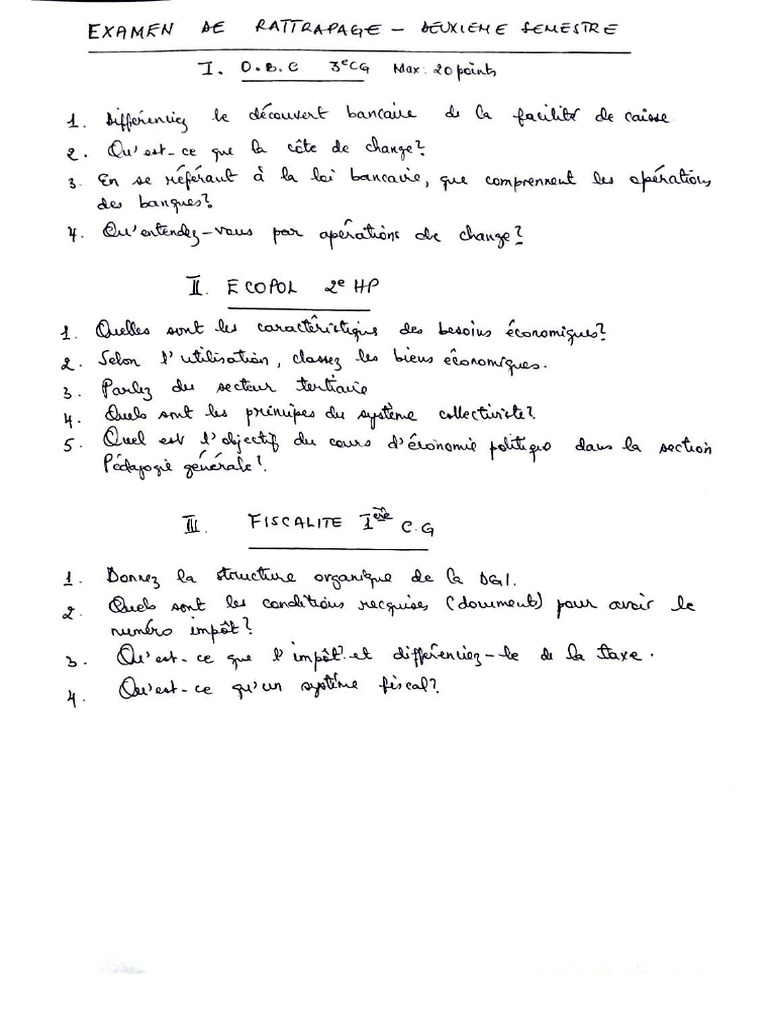 EXAMEN DE RATTRAPAGE – DEUXIEME SEMESTRE
I. O.B.C 3eCG Max: 20 points
1. Différenciez le découvert bancaire de la facilité de caisse.
2. Qu'est-ce que la côte de change?
3. En se référant à la loi bancaire, que comprennent les opérations
des banques?
4. Qu'entendez-vous par opérations de change?
II. ECOPOL 2e HP
1. Quelles sont les caractéristique des besoins économiques?
2. Selon l'utilisation, classez les biens économiques.
3. Parlez du secteur tertiaire
4. Quels sont les principes du système collectiviste?
5. Quel est l'objectif du cours d'économie politique dans la section
Pédagogie générale?
III. FISCALITE 1ère C.G
1. Donnez la structure organique de la DGI.
2. Quels sont les conditions requises (document) pour avoir le
numéro impôt?
3. Qu'est-ce que l'impôt? et différenciez-le de la taxe.
4. Qu'est-ce qu'un système fiscal?